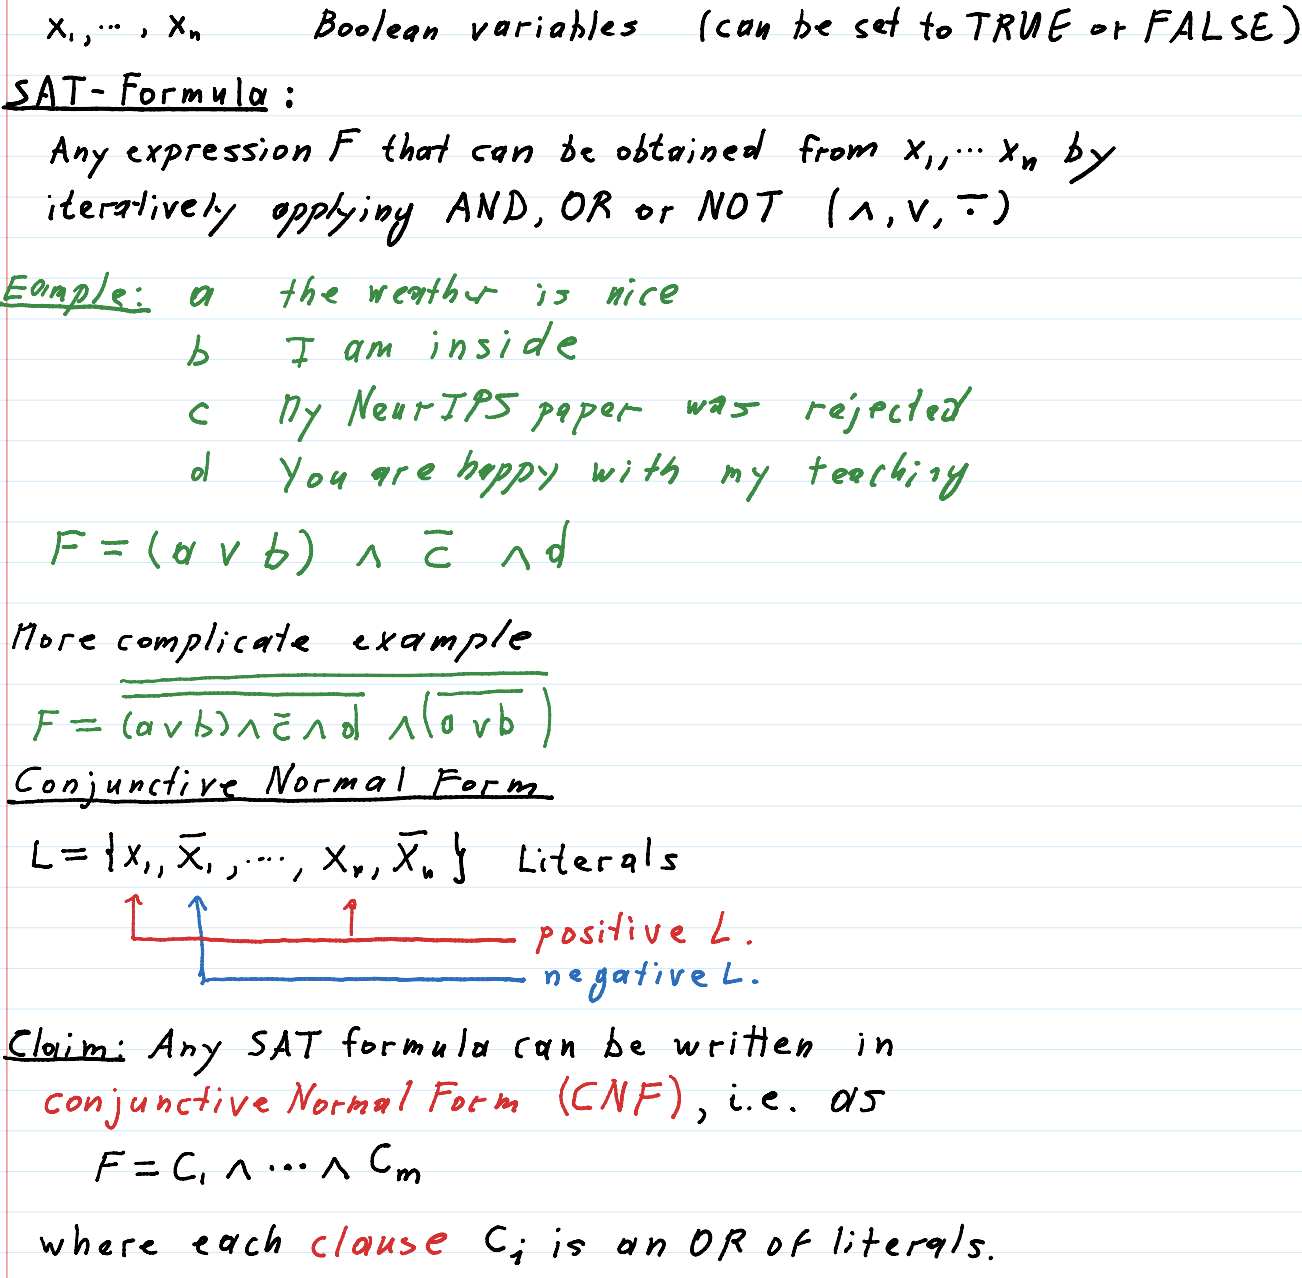 x₁, ⋯, xₙ Boolean variables (can be set to TRUE or FALSE)
SAT-Formula:
Any expression F that can be obtained from x₁, ⋯ xₙ by
iteratively applying AND, OR or NOT (∧, ∨, ∸)
Eample: a the weather is nice
b I am inside
c My NeurIPS paper was rejected
d You are happy with my teaching
F = (a ∨ b) ∧ c̅ ∧ d
More complicate example
F = \overline{\overline{(a ∨ b) ∧ \bar{c} ∧ d} ∧ (\overline{a ∨ b})}
Conjunctive Normal Form
L = {x₁, x̅₁, ⋯, xₙ, x̅ₙ} Literals
positive L.
negative L.
Claim: Any SAT formula can be written in
conjunctive Normal Form (CNF), i.e. as
F = C₁ ∧ ⋯ ∧ Cₘ
where each clause Cᵢ is an OR of literals.